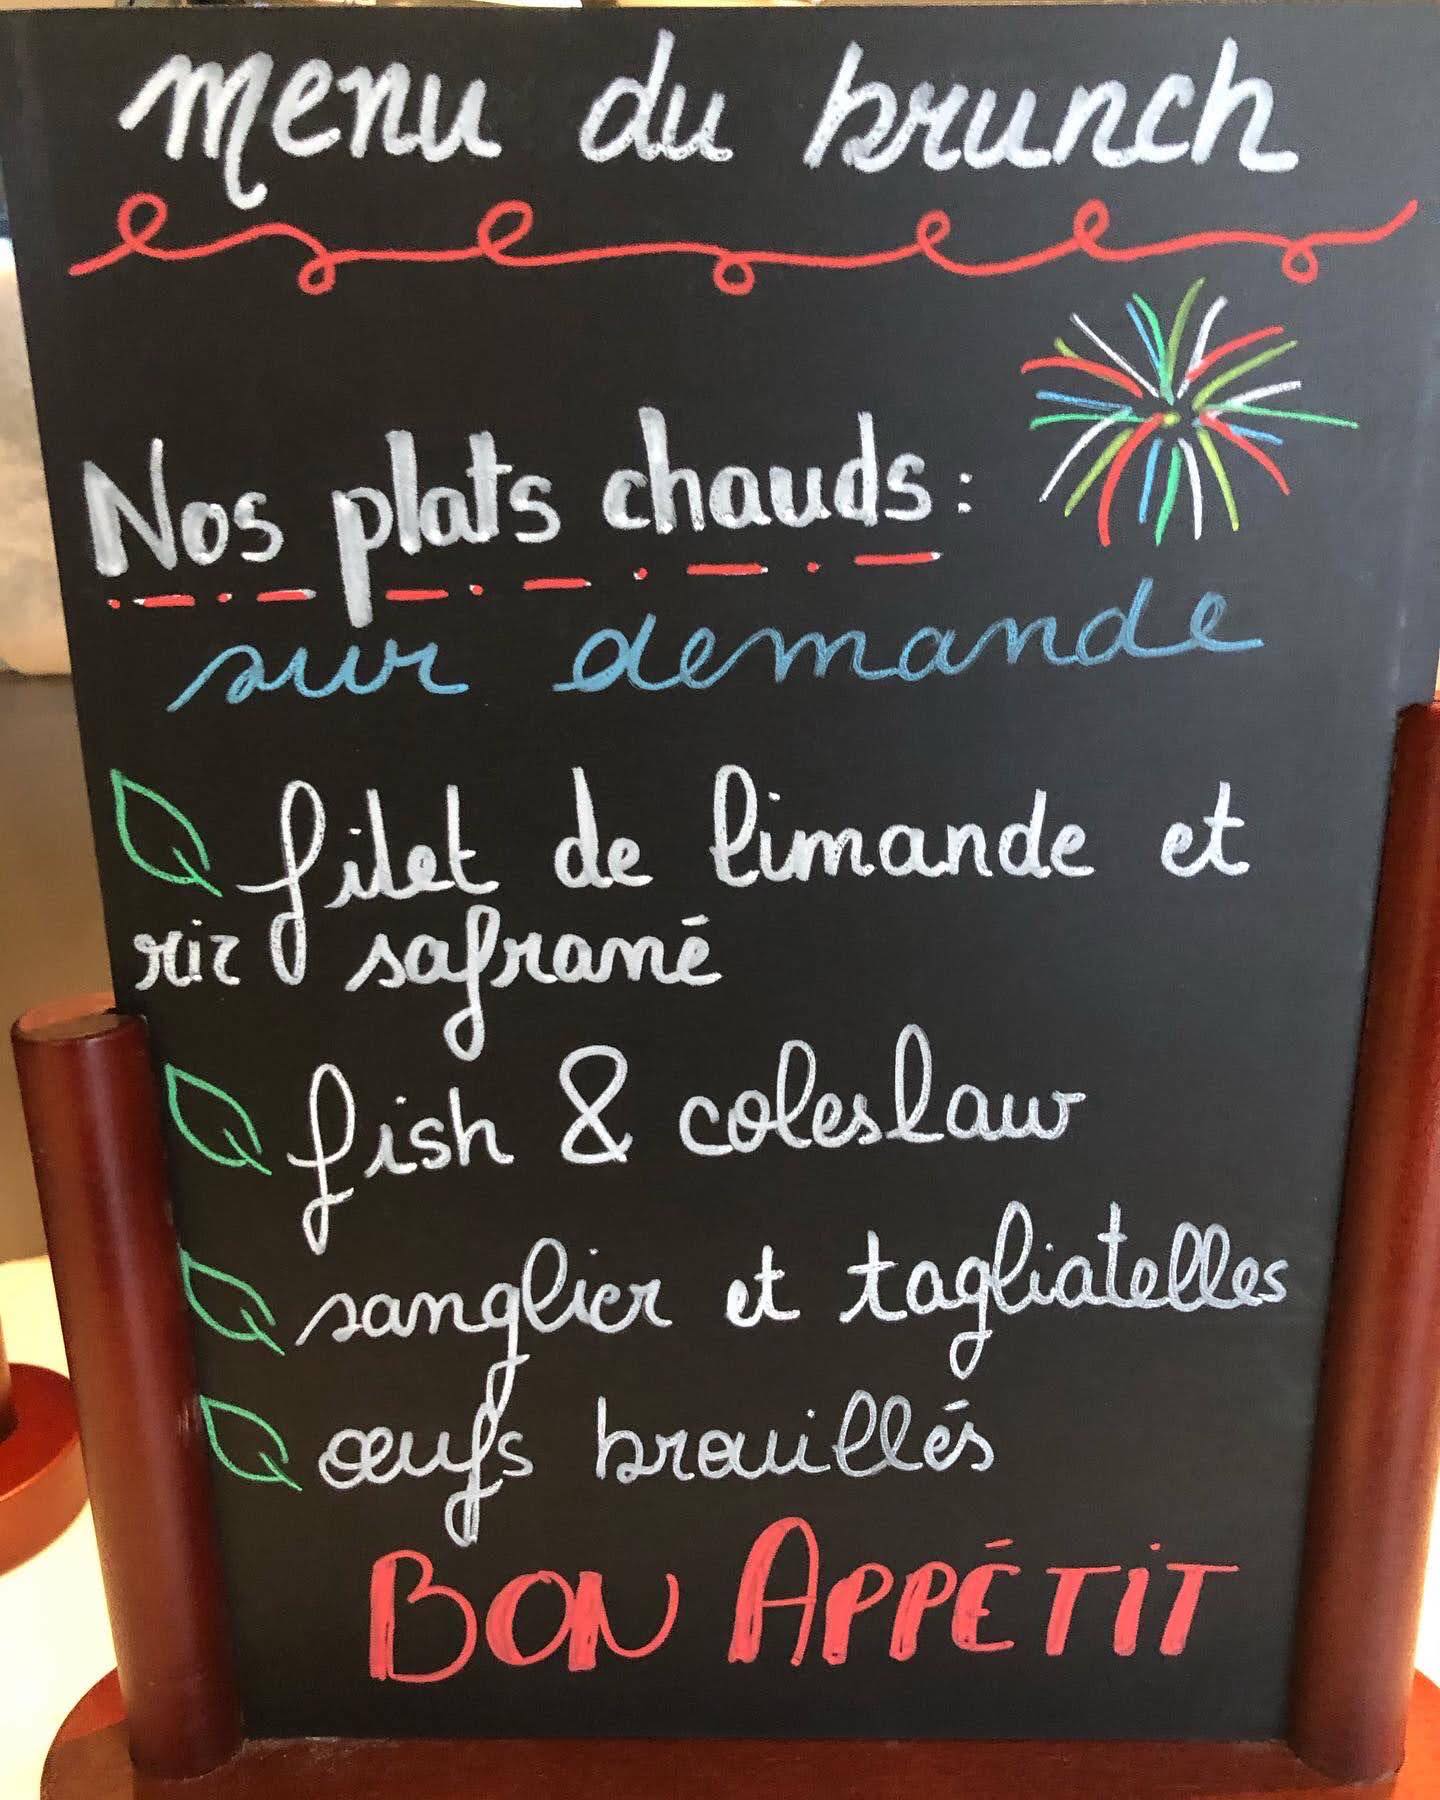 menu du brunch
Nos plats chauds :
sur demande
filet de limande et
riz safrané
fish & coleslaw
sanglier et tagliatelles
œufs brouillés
BON APPÉTIT